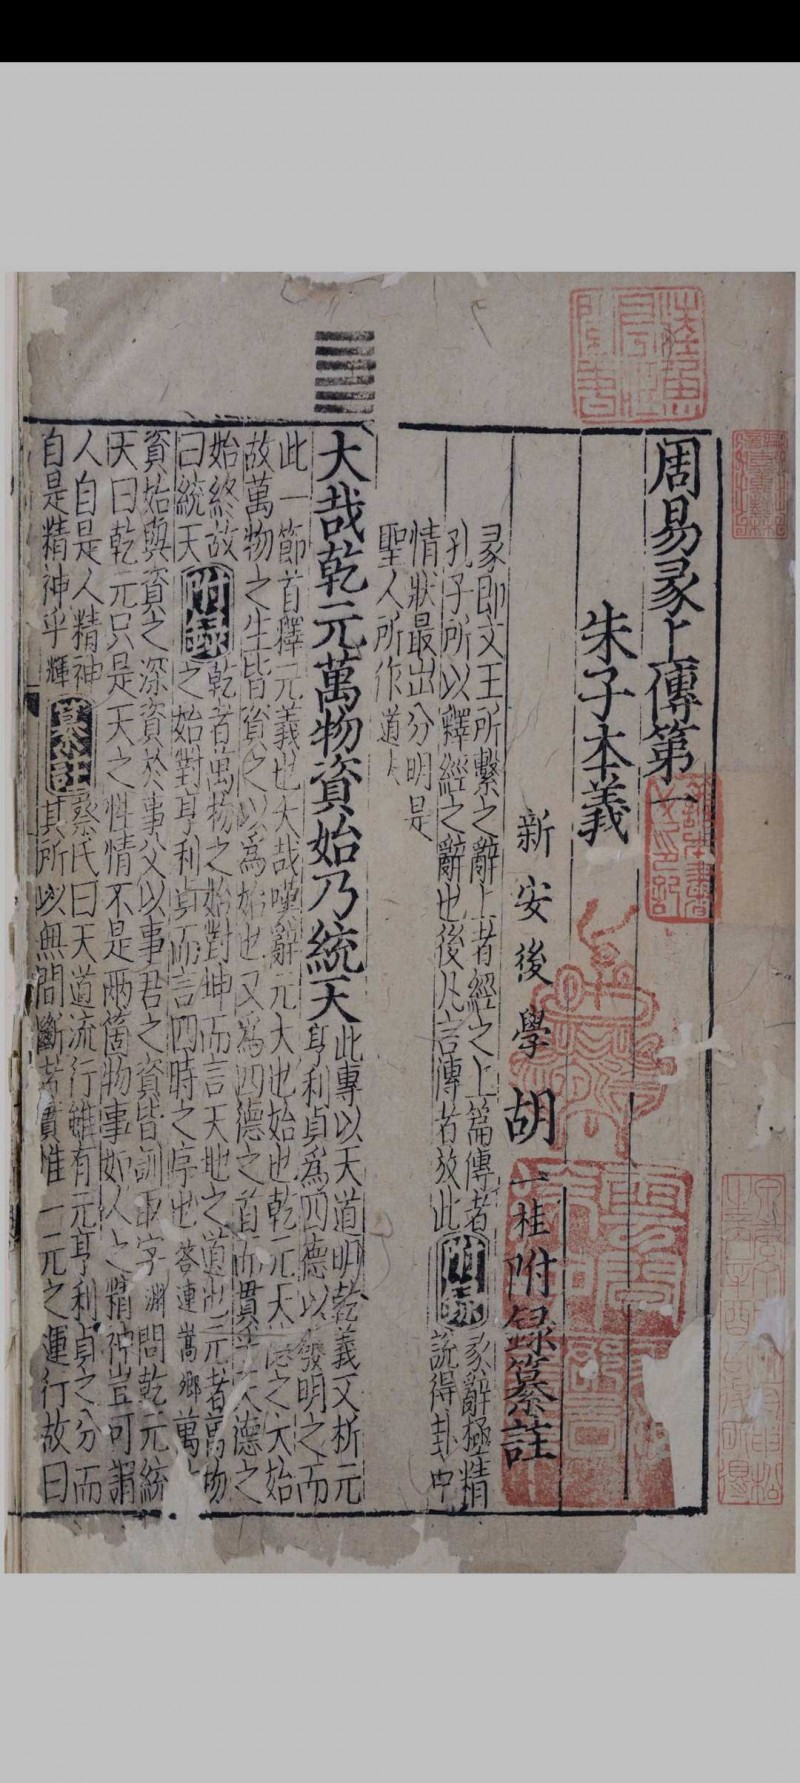 周易彖上傳第一
朱子本義
新安後學胡一桂附錄纂註
彖即文王所繫之辭上者經之上篇傳者
孔子所以釋經之辭也後凡言傳者放此
附錄
彖辭極精
說得卦中
情狀最出分明是
聖人所作道
大哉乾元萬物資始乃統天
此專以天道明乾義又析元
亨利貞為四德以發明之而
此一節首釋元義也大哉嘆辭元大也始也乾元天德之大始
故萬物之生皆資之以為始也又為四德之首而貫乎天德之
始終故
曰統天
附錄
乾者萬物之始對坤而言天地之道也元者萬物
之始對亨利貞而言四時之序也答連嵩鄉萬
資始與資之深資於事父以事君之資皆訓取字淵問乾元統
天曰乾元只是天之性情不是兩箇物事如人之精神豈可謂
人自是人精神
自是精神乎輝
纂註
蔡氏曰天道流行雖有元亨利貞之分而
其所以無間斷者實惟一元之運行故曰